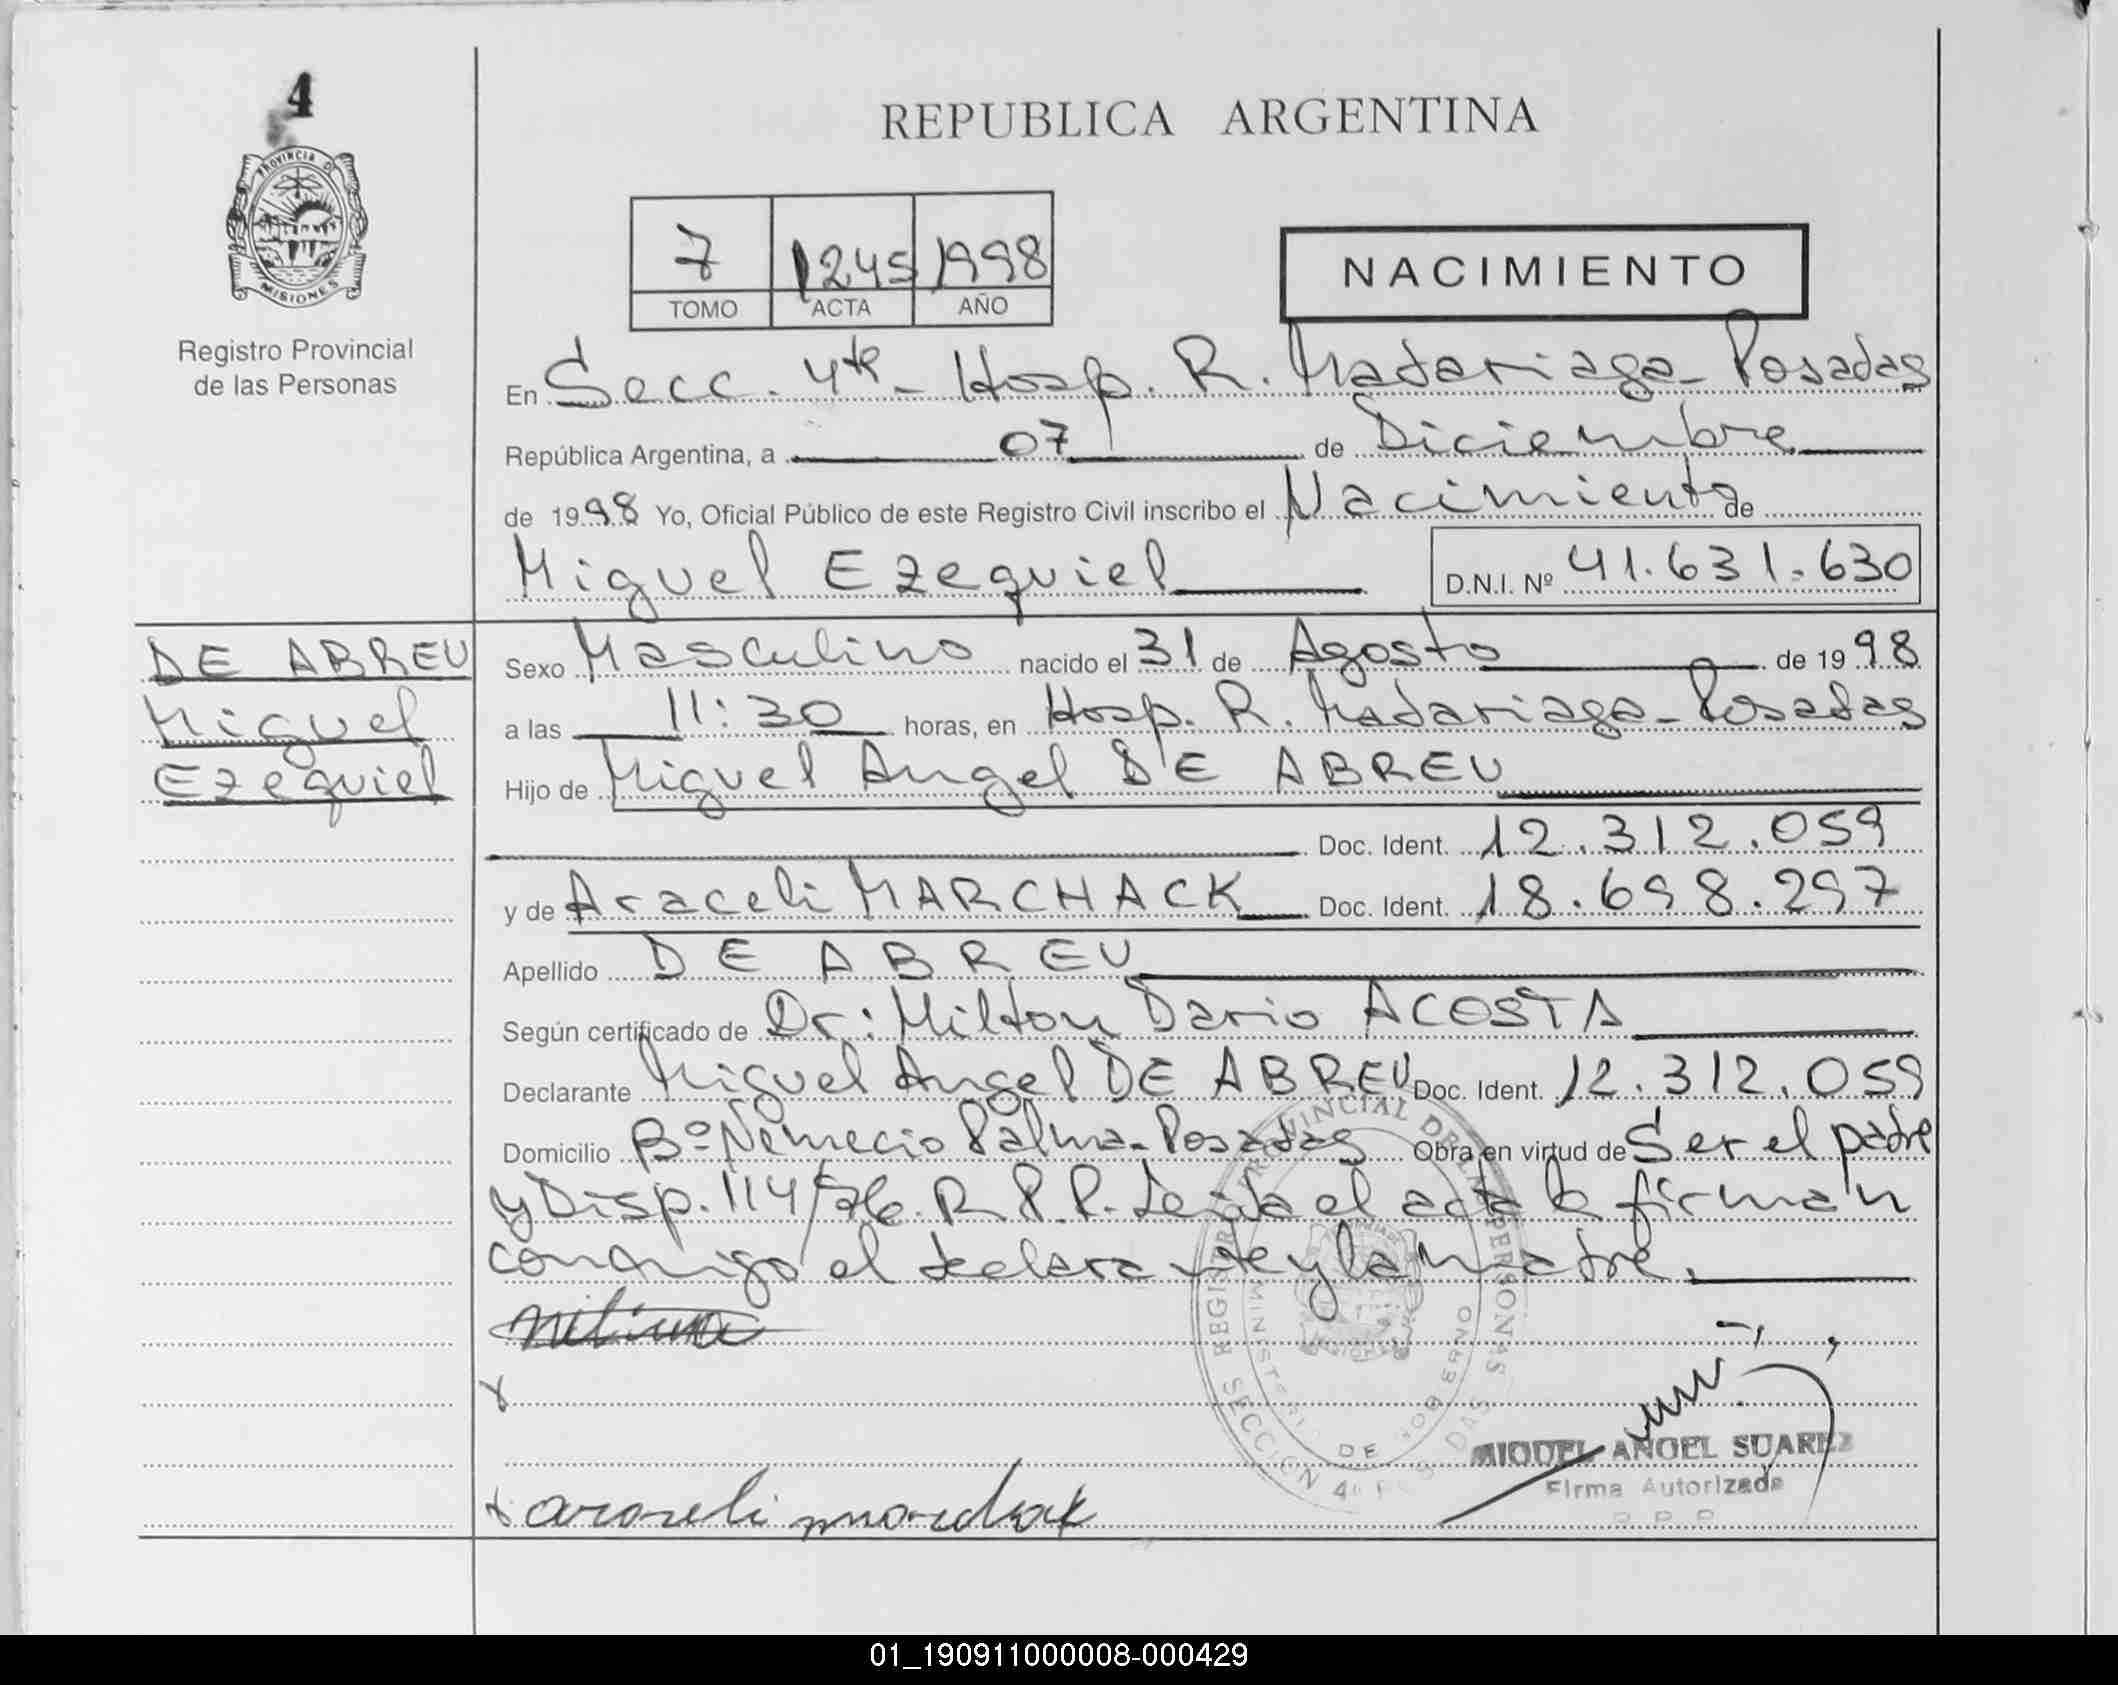 4
PROVINCIA D
MISIONES
Registro Provincial
de las Personas
REPUBLICA ARGENTINA
7 1245 1998
TOMO ACTA AÑO
NACIMIENTO
En Secc. 4ta - Hosp. R. Madariaga - Posadas
República Argentina, a 07 de Diciembre
de 1998 Yo, Oficial Público de este Registro Civil inscribo el Nacimiento de
Miguel Ezequiel
D.N.I. Nº 41.631.630
DE ABREU
Miguel
Ezequiel
Sexo Masculino nacido el 31 de Agosto de 1998
a las 11:30 horas, en Hosp. R. Madariaga - Posadas
Hijo de Miguel Angel DE ABREU
Doc. Ident. 12.312.059
y de Araceli MARCHACK Doc. Ident. 18.698.297
Apellido DE ABREU
Según certificado de Dr: Milton Dario ACOSTA
Declarante Miguel Angel DE ABREU Doc. Ident. 12.312.059
Domicilio Bº Nemecio Palma - Posadas Obra en virtud de Ser el padre
y Disp. 114/96. R.P.P. Leida el acta la firman
conmigo el declarante y la madre.
MIGUEL ANGEL SUAREZ
Firma Autorizada
araseli marchak
01_190911000008-000429